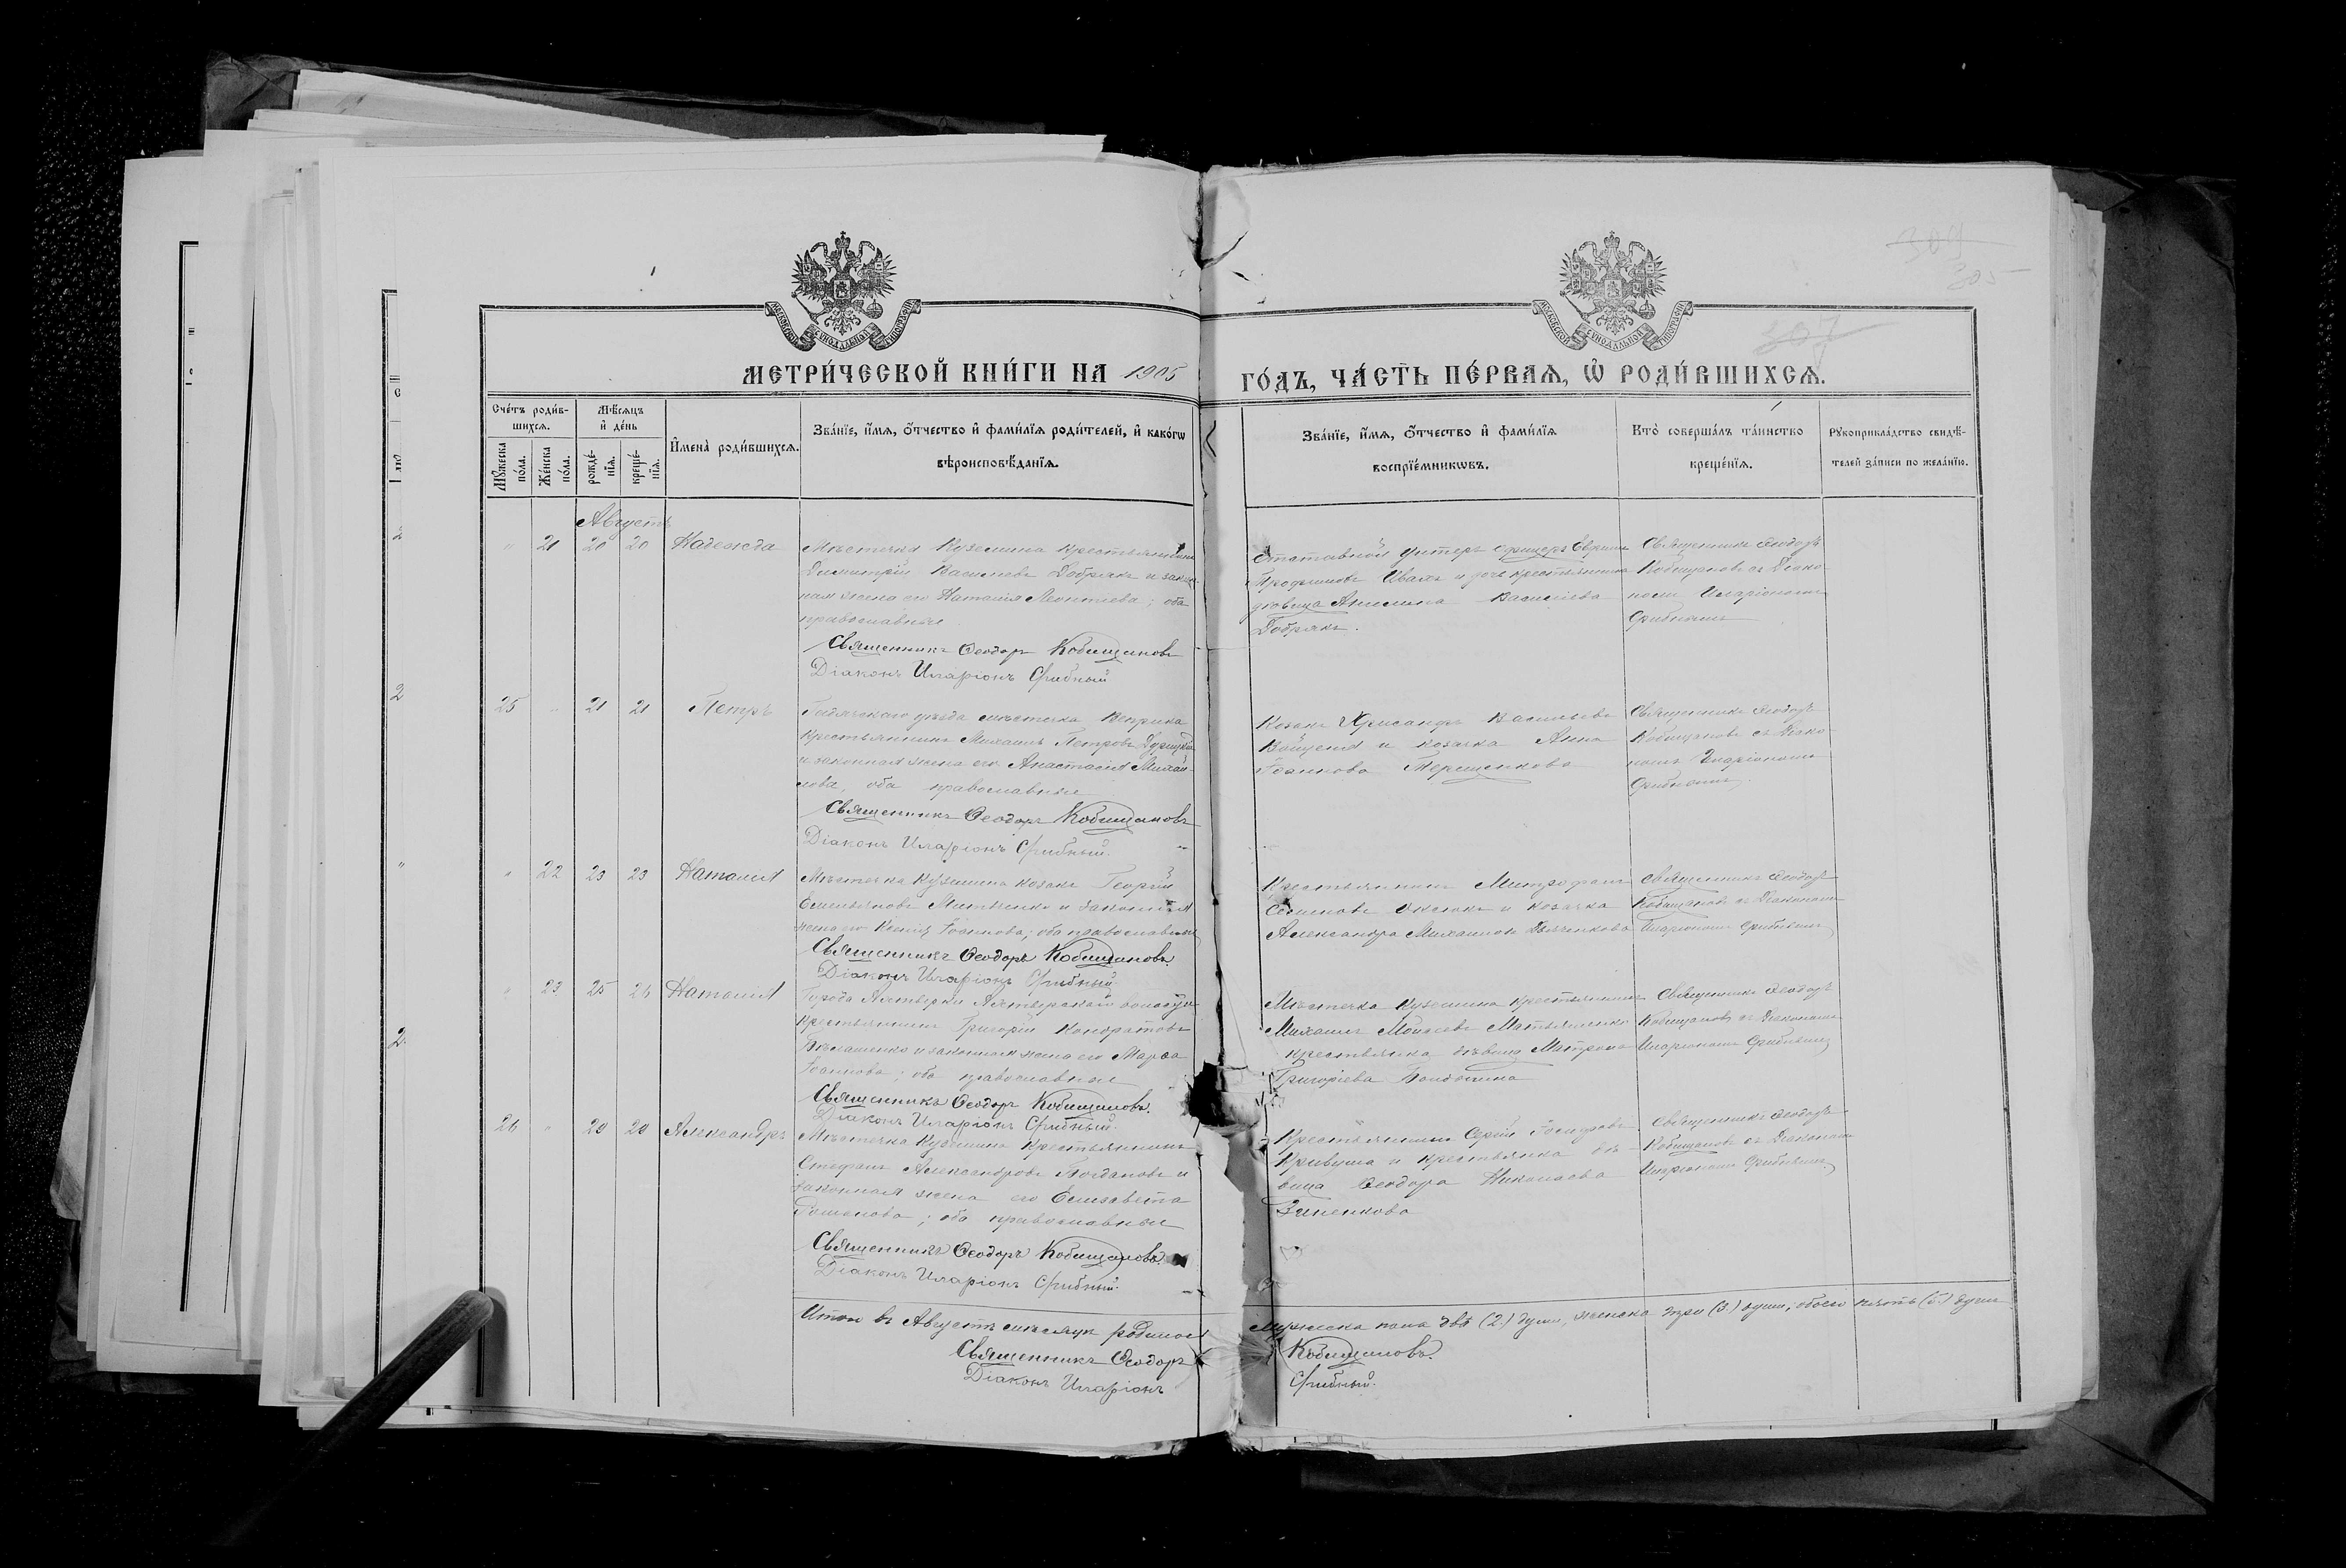 309
305
307
МОСКОВСКОЙ СѴНОДАЛЬНОЙ ТИПОГРАФІИ
МОСКОВСКОЙ СѴНОДАЛЬНОЙ ТИПОГРАФІИ
МЕТРИ́ЧЕСКОЙ КНИ́ГИ НА 1905 ГО́ДЪ, ЧА́СТЬ ПЕ́РВАѦ, Ѡ҆ РОДИ́ВШИХСѦ.
Сче́тъ роди́в-
шихсѧ.
Мѣ́сѧцъ
и҆ де́нь
Мꙋ́жеска
по́ла.
Же́нска
по́ла.
рожде́-
нїѧ.
креще́-
нїѧ.
И҆мена̀ роди́вшихсѧ.
Зва́нїе, и҆́мѧ, ѻ҆́тчество и҆ фами́лїѧ роди́телей, и҆ како́гѡ
вѣроисповѣ́данїѧ.
Зва́нїе, и҆́мѧ, ѻ҆́тчество и҆ фами́лїѧ
воспрїе́мникѡвъ.
Кто̀ соверша́лъ та́инство
креще́нїѧ.
Рꙋкоприкла́дство свидѣ́-
телей за́писи по жела́нїю.
Августъ
" 21 20 20 Надежда
Мѣстечка Куземина крестьянинъ
Димитрій Васильевъ Добрякъ и закон-
ная жена его Наталія Леонтіева; оба
православные.
Священникъ Ѳеодоръ Кобищановъ
Діаконъ Иларіонъ Срибный.
Отставной унтеръ офицеръ
Трофимовъ и дочь крестьянина
дѣвица Васильева
Добрякъ.
Священникъ Ѳеодоръ
Кобищановъ съ Діако-
номъ Иларіономъ
Срибнымъ
25 " 21 21 Петръ
Гадячскаго уѣзда мѣстечка Веприка
крестьянинъ Михаилъ Петровъ
и законная жена его Анастасія Михаи-
лова, оба православные
Священникъ Ѳеодоръ Кобищановъ
Діаконъ Иларіонъ Срибный.
Козакъ Хрисанфъ Васильевъ
и козачка Анна
Іоаннова Терещенкова
Священникъ Ѳеодоръ
Кобищановъ съ Діако-
номъ Иларіономъ
Срибнымъ.
" 22 23 23 Наталія
Мѣстечка Куземина козакъ Георгій
Емельяновъ и законная
жена его Ксенія Іоаннова; оба православные
Священникъ Ѳеодоръ Кобищановъ.
Діаконъ Иларіонъ Срибный.
Крестьянинъ Митрофанъ
Семеновъ и козачка
Александра Михаилова Дьяченкова
Священникъ Ѳеодоръ
Кобищановъ съ Діакономъ
Иларіономъ Срибнымъ
23 25 26 Наталія
Города Ахтырки Ахтырской волости
крестьянинъ Григорій Кондратовъ
и законная жена его Марѳа
Іоаннова; оба православные
Священникъ Ѳеодоръ Кобищановъ.
Діаконъ Иларіонъ Срибный.
Мѣстечка Куземина крестьянинъ
Михаилъ Моисеевъ Матяшенко
крестьянка дѣвица Матрона
Григоріева
Священникъ Ѳеодоръ
Кобищановъ съ Діакономъ
Иларіономъ Срибнымъ
26 " 20 20 Александръ
Мѣстечка Куземина крестьянинъ
Стефанъ Александровъ Богдановъ и
законная жена его Елисавета
Романова; оба православные
Священникъ Ѳеодоръ Кобищановъ.
Діаконъ Иларіонъ Срибный.
Крестьянинъ Сергій
Кривуша и крестьянка дѣ-
вица Ѳеодора Николаева
Зиненкова
Священникъ Ѳеодоръ
Кобищановъ съ Діакономъ
Иларіономъ Срибнымъ.
Итого въ Августѣ мѣсяцѣ родилось мужеска пола двѣ (2.) души, женска три (3.) души, обоего пять (5.) душъ
Священникъ Ѳеодоръ Кобищановъ.
Діаконъ Иларіонъ Срибный.